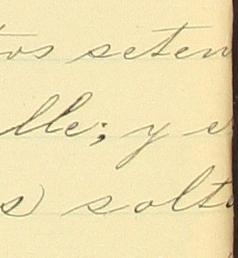 tos seten
lle; y e
s) solt